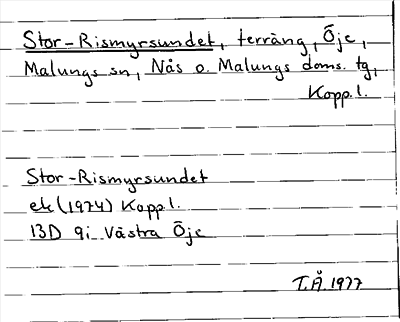 Stor-Rismyrsundet, terräng, Öje,
Malungs sn, Nås o. Malungs doms. tg,
Kopp. l.
Stor-Rismyrsundet
ek (1974) Kopp l.
13D 9i Västra Öje
T.Å. 1977